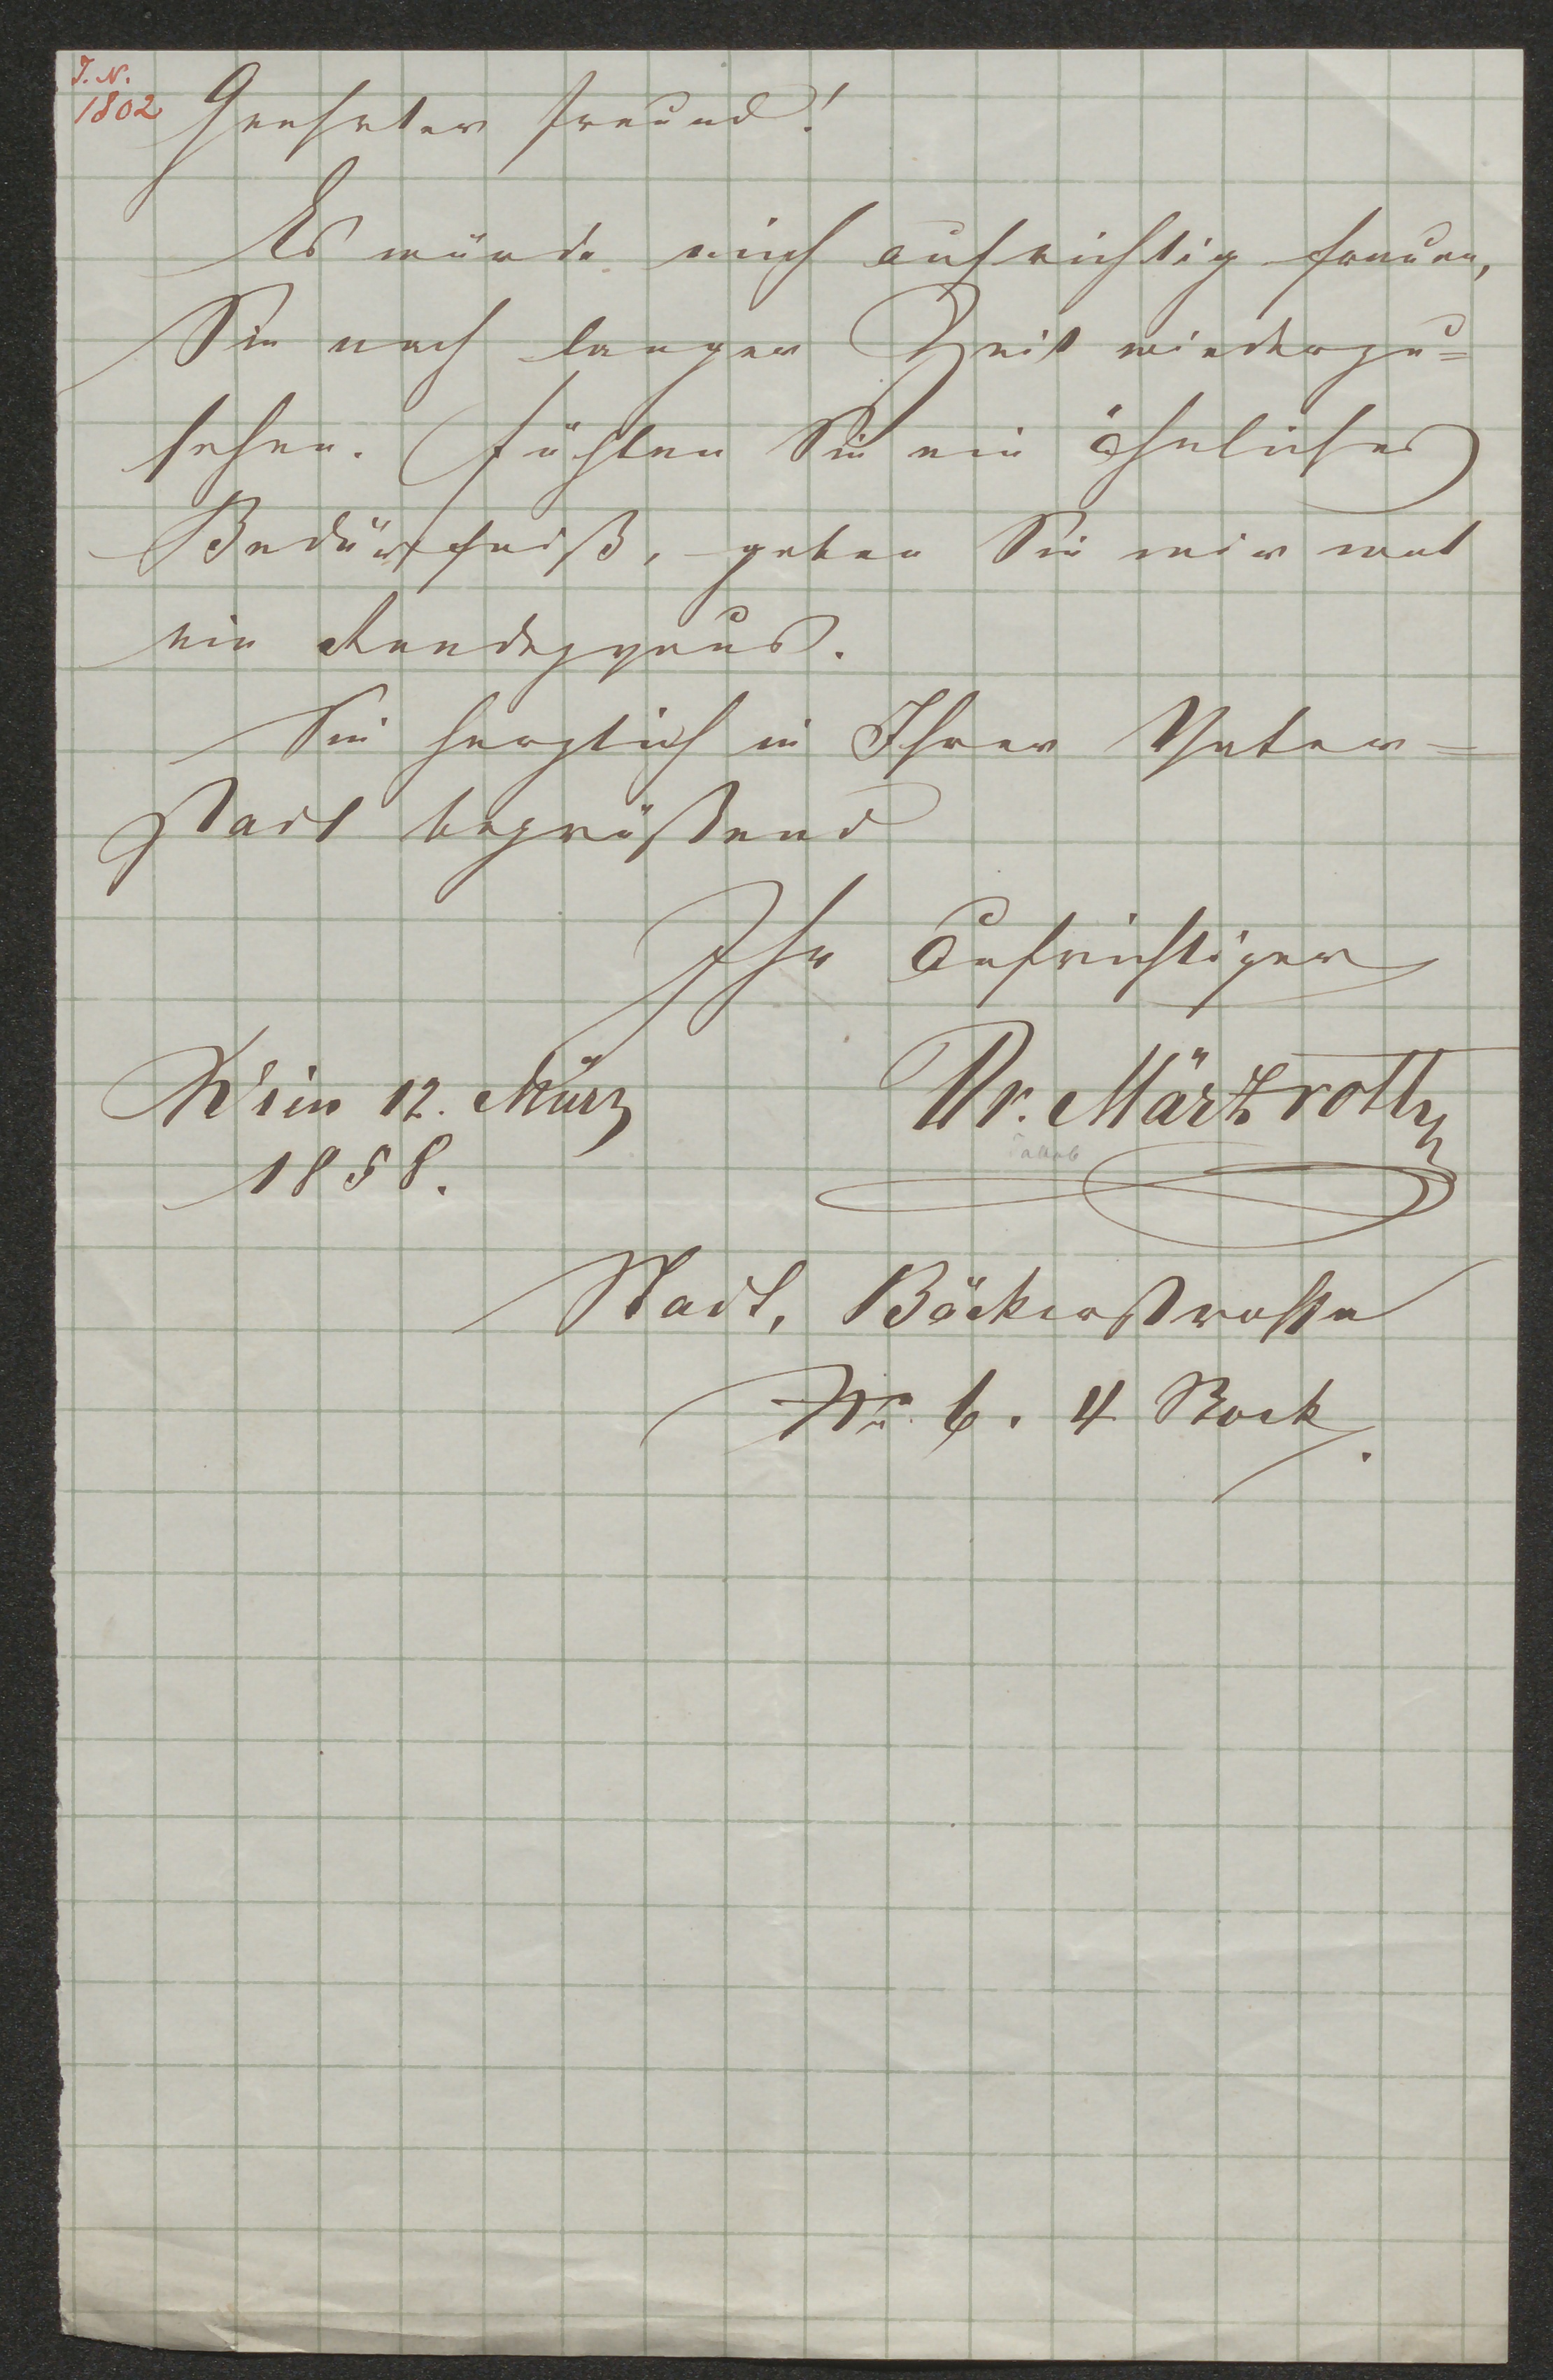 I. N.
1802
Geehrter Freund!
Es würde mich aufrichtig freuen,
Sie nach langer Zeit wiederzu=
sehen. Fühlen Sie ein ähnliches
Bedürfniß, geben Sie mir mal
ein Rendezvous.
Sie herzlich in Ihrer Vater=
stadt begrüßend
Ihr aufrichtiger
Wien 12. März
1858.
Dr. Märzroth
Stadt, Bäckerstrasse
No 6. 4 Stock.